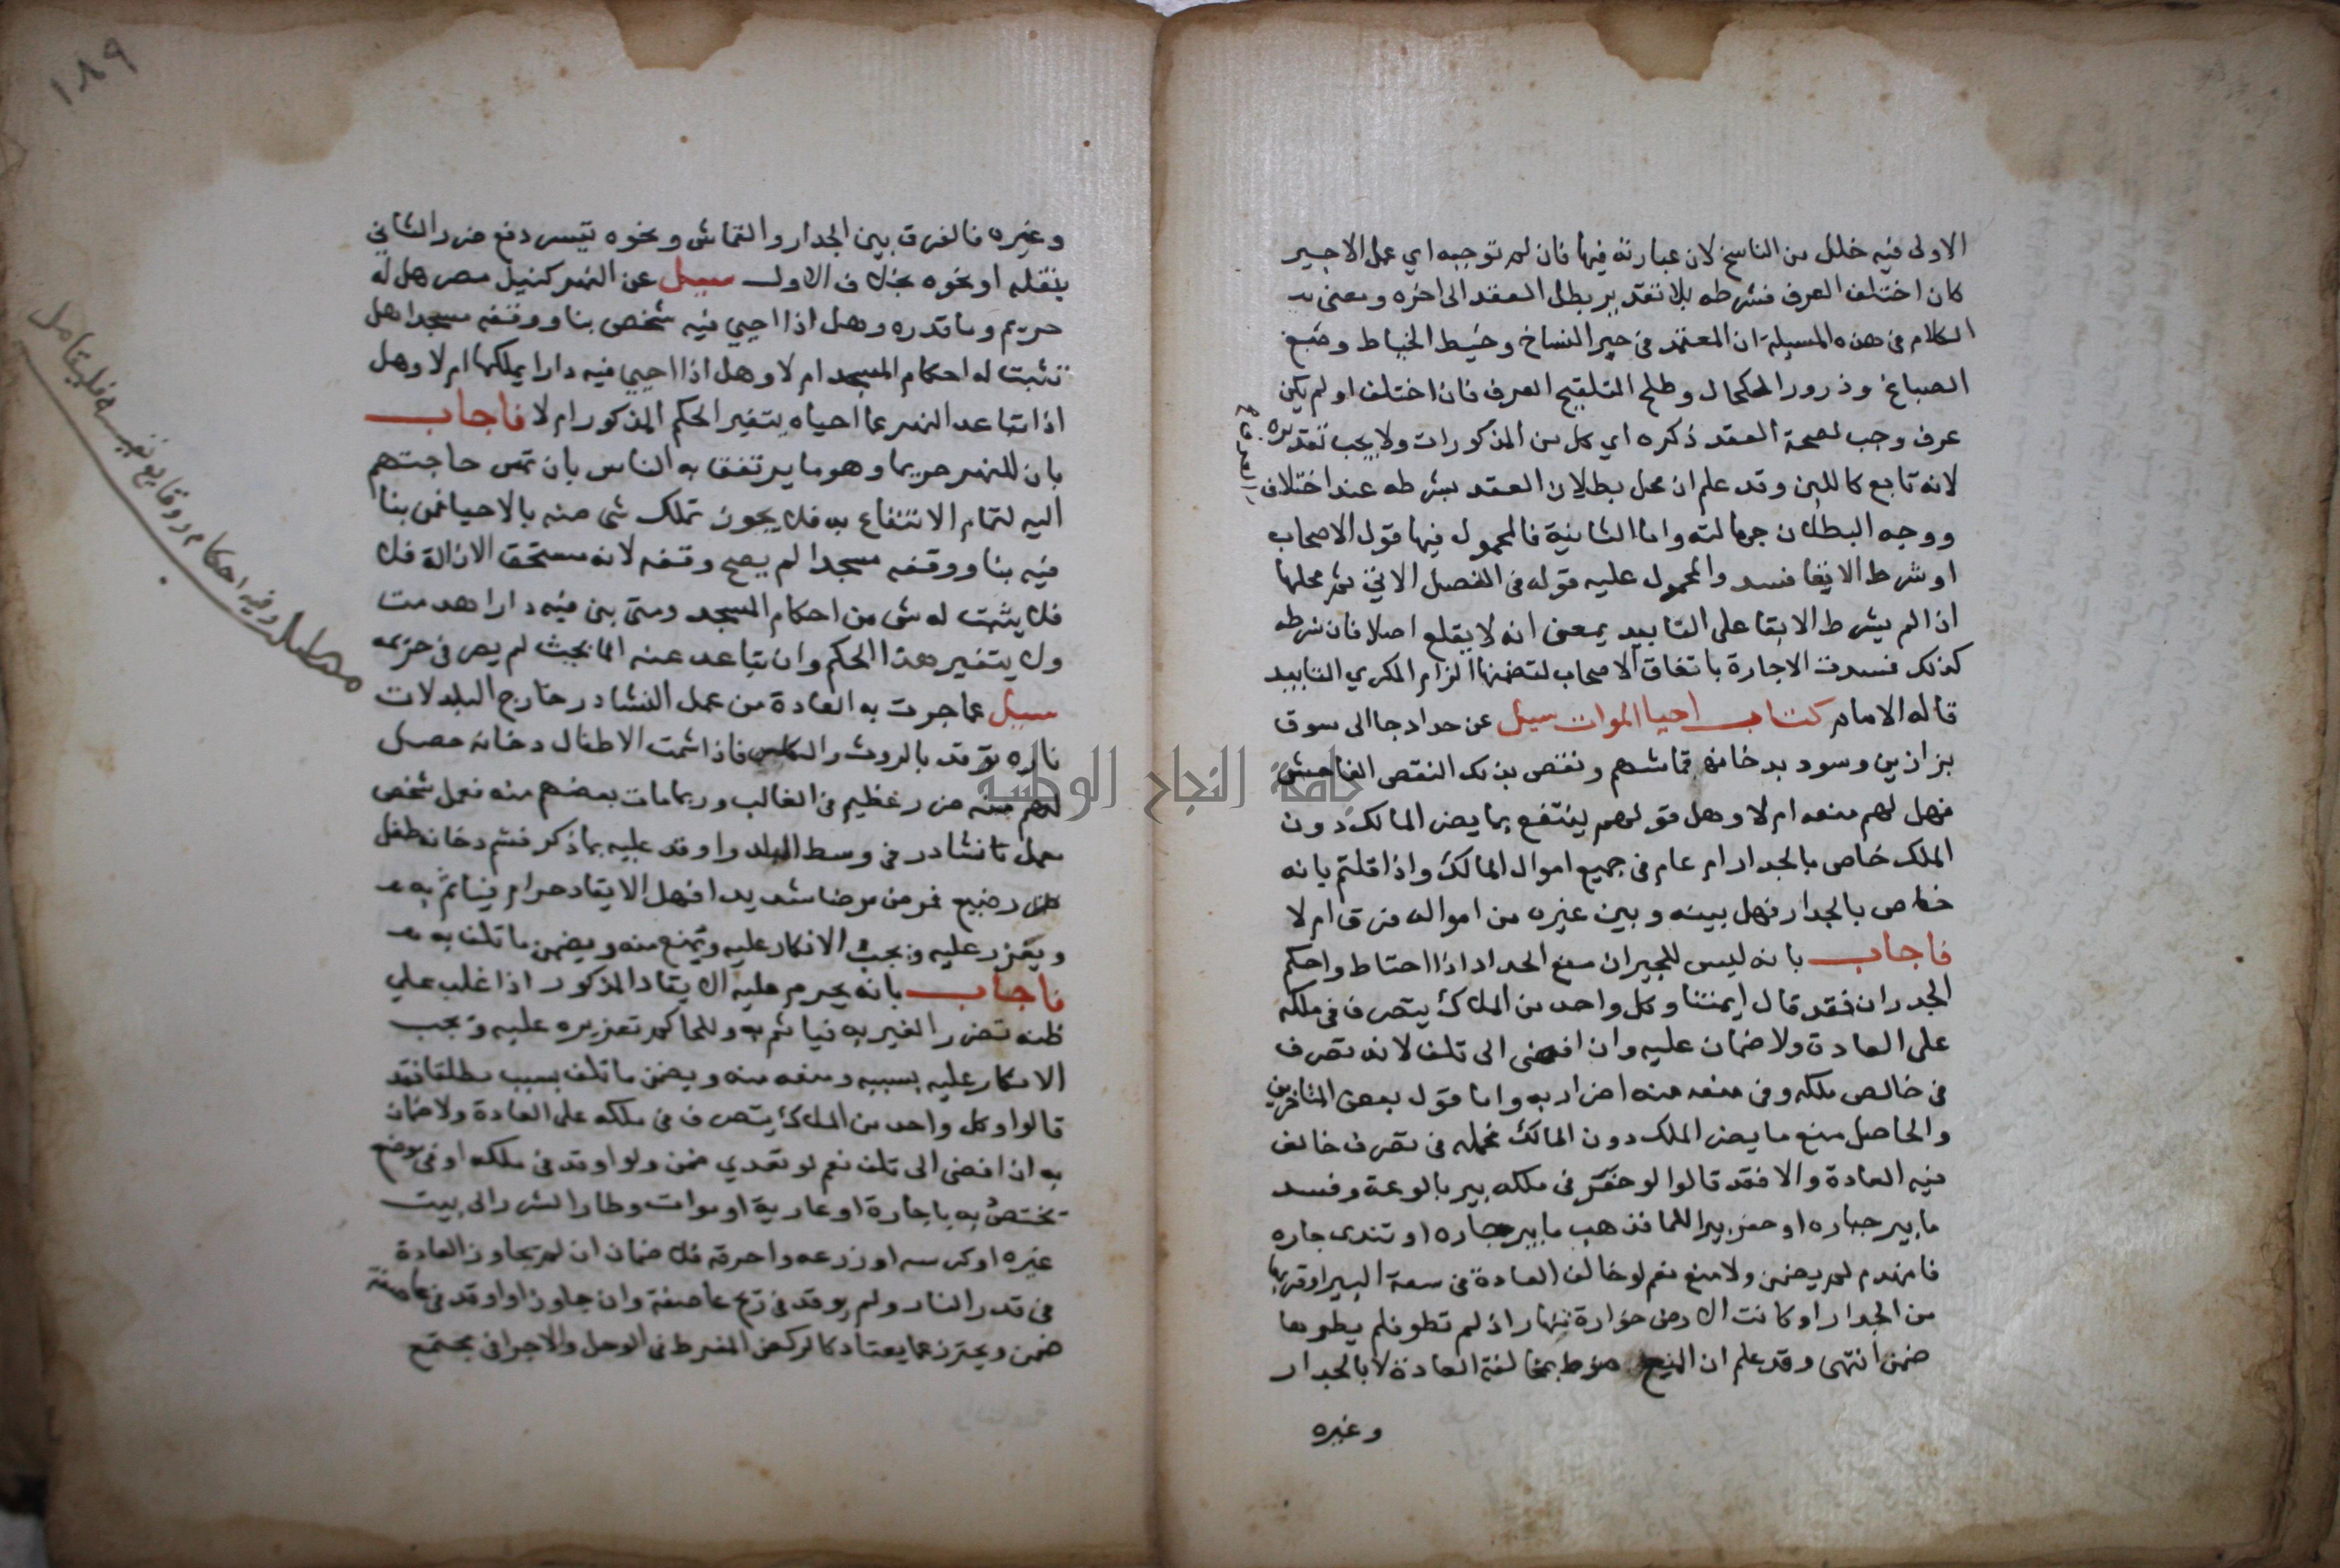 الاولى فيه خلل من الناسخ لان عبارته فيها فان لم توجبه اي عمل الاجير
كان اختلف العرف فشرطه بلا تقدير بطل العقد الى اخره ومعنى
الكلام في هذه المسيلة ان المعتمد في حبر النساخ وخيط الخياط وصبغ
الصباغ وذرور الكحال وطلح التلقيح العرف فان اختلف او لم يكن
عرف وجب لصحة العقد ذكره اي كل من المذكورات ولا يجب تقديره
لانه تابع كاللبن وقد علم ان محل بطلان العقد بشرطه عند اختلاف
العرف
ووجه البطلان جهالته واما الثانية فالمحمول فيها قول الاصحاب
او شرط الابقا فسد والمحمول عليه قوله في الفصل الاتي ثم محلها
اذا لم يشرط الابقا على التابيد بمعنى انه لا يقلع اصلا فان شرطه
كذلك فسدت الاجارة باتفاق الاصحاب لتضمنها الزام المكري التابيد
قاله الامام كتاب احيا الموات سيل عن حداد جا الى سوق
بزازين وسود بدخانه قماشهم ونقص بذلك النقص الفاحش
فهل لهم منعه ام لا وهل قولهم ينتفع بما يضر المالك دون
الملك خاص بالجدار ام عام في جميع اموال المالك واذا قلتم بانه
خاص بالجدار فهل بينه وبين غيره من امواله فرق ام لا
فاجاب بانه ليس للجيران منع الحداد اذا احتاط واحكم
الجدران فقد قال ايمتنا وكل واحد من الملاك يتصرف في ملكه
على العادة ولا ضمان عليه وان افضى الى تلف لانه تصرف
في خالص ملكه وفي منعه منه اضرار به واما قول بعض المتاخرين
والحاصل منع ما يضر الملك دون المالك فمحله في تصرف خالف
فيه العادة والا فقد قالوا لو حفر في ملكه بير بالوعة وفسد
ما بير جاره او حفر بيرا للما فذهب ما بير جاره او تندى جاره
فانهدم لم يضمن ولا منع نعم لو خالف العادة في سعة البير او قربها
من الجدار او كانت الارض خوارة تنهار اذ لم تطو فلم يطوها
ضمن انتهى وقد علم ان المنع منوط بمخالفة العادة لا بالجدار
وغيره
١٨٩
وغيره فالفرق بين الجدار والقماش ونحوه تيسر دفع ضرر الثاني
بنقله او نحوه بخلاف الاول سيل عن النهر كنيل مصر هل له
حريم وما قدره وهل اذا احيي فيه شخص بنا ووقفه مسجدا هل
تثبت له احكام المسجد ام لا وهل اذا احيي فيه دارا يملكها ام لا وهل
اذا تباعد النهر عما احياه يتغير الحكم المذكور ام لا فاجاب
بان للنهر حريما وهو ما يرتفق به الناس بان تمس حاجتهم
اليه لتمام الانتفاع به فلا يجوز تملك شي منه بالاحيا فمن بنا
فيه بنا ووقفه مسجدا لم يصح وقفه لانه مستحق الازالة فلا
فلا يثبت له شي من احكام المسجد ومتى بنى فيه دارا هدمت
ولا يتغير هذا الحكم وان تباعد عنه الما بحيث لم يصر في حريمه
سيل عما جرت به العادة من عمل النشادر خارج البلد لان
ناره توقد بالروث والكلس فاذا شمت الاطفال دخانه حصل
لهم منه ضرر عظيم في الغالب وربما مات بعضهم منه فعمل شخص
معمل نشادر في وسط البلد واوقد عليه بما ذكر فشم دخانه طفل
طفل رضيع فمرض مرضا شديدا فهل الايقاد حرام فياثم به
ويعزر عليه ويجب الانكار عليه ويمنع منه ويضمن ما تلف به
فاجاب بانه يحرم عليه الايقاد المذكور اذا غلب على
ظنه تضرر الغير به فياثم به وللحاكم تعزيره عليه ويجب
الانكار عليه بسببه ومنعه منه ويضمن ما تلف بسبب مطلقا فقد
قالوا وكل واحد من الملاك يتصرف في ملكه على العادة ولا ضمان
به ان افضى الى تلف نعم لو تعدي ضمن ولو اوقد في ملكه او في موضع
يختص به باجارة او عارية او موات وطار الشرر الى بيت
غيره او كدسه او زرعه واحرقه فلا ضمان ان لم يجاوز العادة
في قدر النار ولم يوقد في ريح عاصفة وان جاوز او اوقد في عاصفة
ضمن ويحترز عما يعتاد كالركض المفرط في الوحل والاجرا في مجتمع
وفيه احكام ووقايع نفيسة فليتامل
جامعة النجاح الوطنية